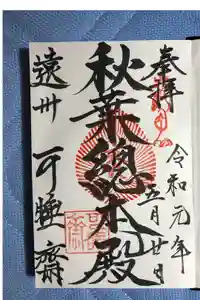 奉拝
令和元年
五月廿日
秋葉總本殿
遠州 可睡齋